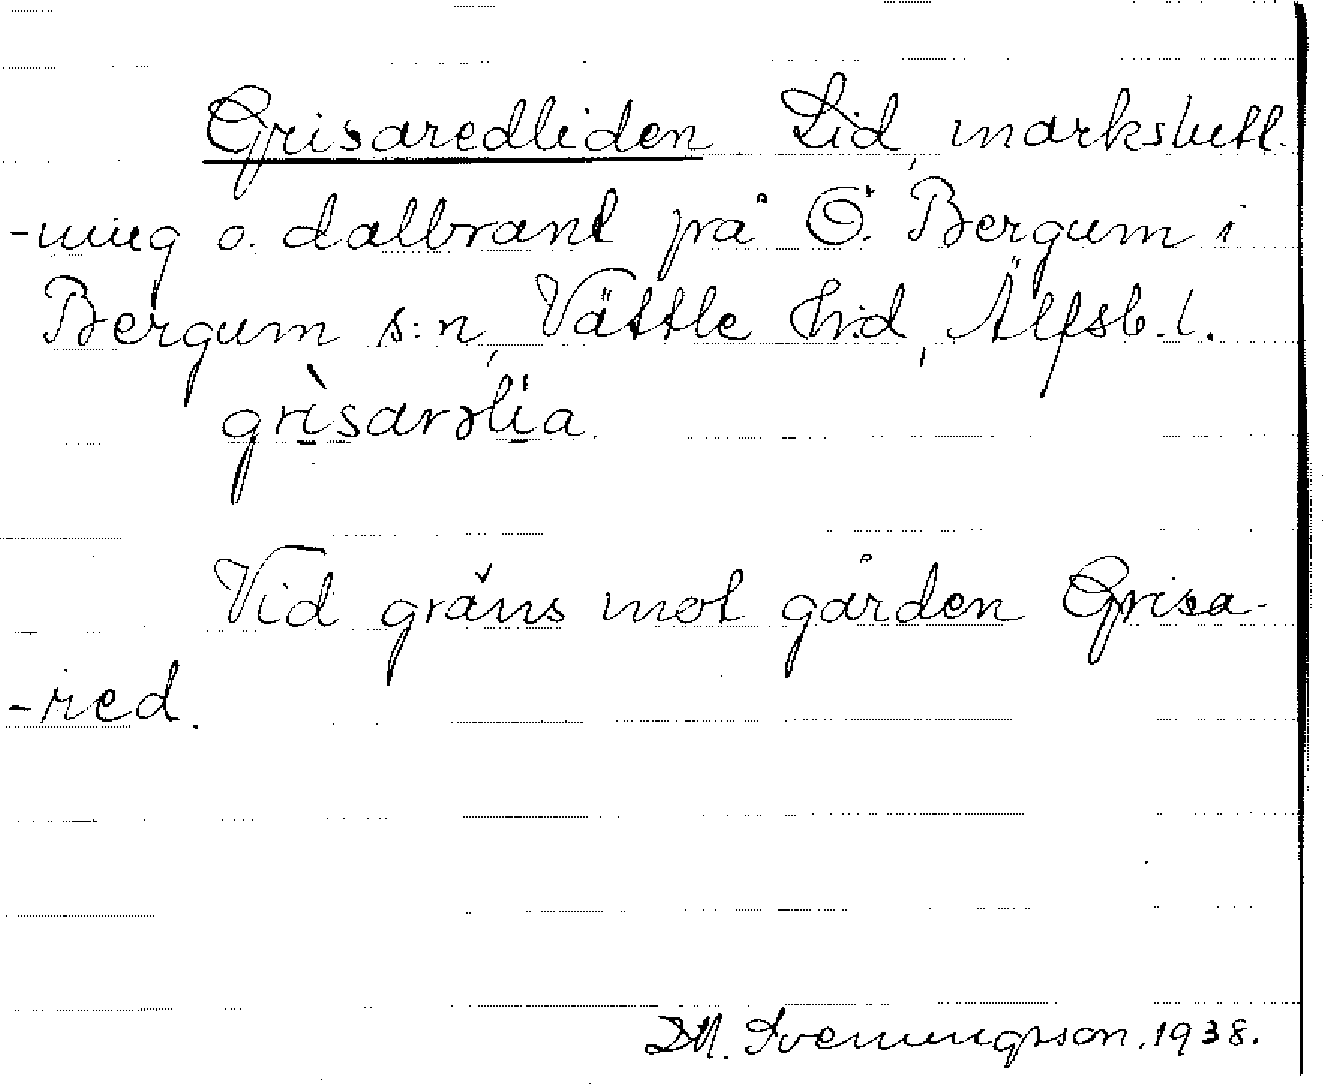 Grisaredliden Lid, markslutt-
-ning o. dalbrant på Ö. Bergum i
Bergum s:n, Vättle hd, Älfsb. l.
grìsarəlia.
Vid gräns mot gården Grisa-
-red.
D.A. Svenningsson. 1938.